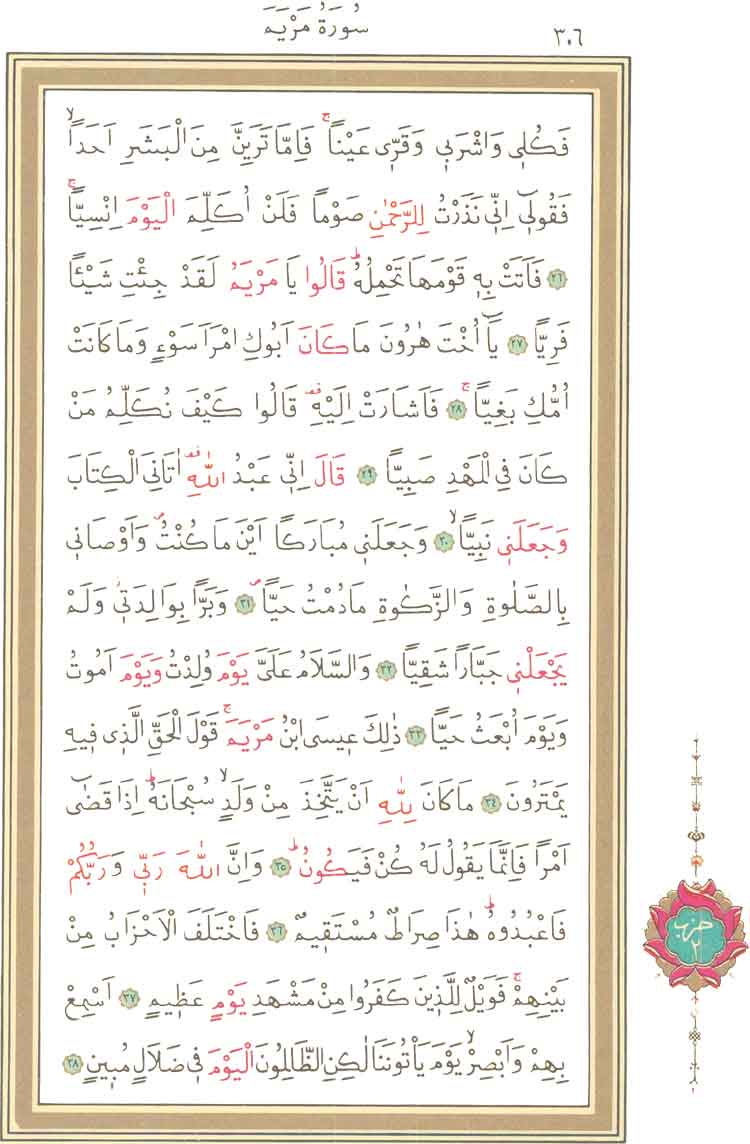 سُورَةُ مَرْيَمَ
٣٠٦
فَكُلٖي وَاشْرَبٖي وَقَرّٖي عَيْناًۚ فَاِمَّا تَرَيِنَّ مِنَ الْبَشَرِ اَحَداًۙ
فَقُولٖٓي اِنّٖي نَذَرْتُ لِلرَّحْمٰنِ صَوْماً فَلَنْ اُكَلِّمَ الْيَوْمَ اِنْسِيًّاۚ
﴿٢٦﴾ فَاَتَتْ بِهٖ قَوْمَهَا تَحْمِلُهُۜ قَالُوا يَا مَرْيَمُ لَقَدْ جِئْتِ شَيْـٔاً
فَرِيًّا ﴿٢٧﴾ يَٓا اُخْتَ هٰرُونَ مَا كَانَ اَبُوكِ امْرَاَ سَوْءٍ وَمَا كَانَتْ
اُمُّكِ بَغِيًّاۚ ﴿٢٨﴾ فَاَشَارَتْ اِلَيْهِࣞ قَالُوا كَيْفَ نُكَلِّمُ مَنْ
كَانَ فِي الْمَهْدِ صَبِيًّا ﴿٢٩﴾ قَالَ اِنّٖي عَبْدُ اللّٰهِࣞ اٰتَانِيَ الْكِتَابَ
وَجَعَلَنٖي نَبِيًّاۙ ﴿٣٠﴾ وَجَعَلَنٖي مُبَارَكاً اَيْنَ مَا كُنْتُࣕ وَاَوْصَانٖي
بِالصَّلٰوةِ وَالزَّكٰوةِ مَا دُمْتُ حَيًّاࣕ ﴿٣١﴾ وَبَرًّا بِوَالِدَتٖيؗ وَلَمْ
يَجْعَلْنٖي جَبَّاراً شَقِيًّا ﴿٣٢﴾ وَالسَّلَامُ عَلَيَّ يَوْمَ وُلِدْتُ وَيَوْمَ اَمُوتُ
وَيَوْمَ اُبْعَثُ حَيًّا ﴿٣٣﴾ ذٰلِكَ عٖيسَى ابْنُ مَرْيَمَۚ قَوْلَ الْحَقِّ الَّذٖي فٖيهِ
يَمْتَرُونَ ﴿٣٤﴾ مَا كَانَ لِلّٰهِ اَنْ يَتَّخِذَ مِنْ وَلَدٍۙ سُبْحَانَهُۜ اِذَا قَضٰٓى
اَمْراً فَاِنَّمَا يَقُولُ لَهُ كُنْ فَيَكُونُۜ ﴿٣٥﴾ وَاِنَّ اللّٰهَ رَبّٖي وَرَبُّكُمْ
فَاعْبُدُوهُۜ هٰذَا صِرَاطٌ مُسْتَقٖيمٌ ﴿٣٦﴾ فَاخْتَلَفَ الْاَحْزَابُ مِنْ
بَيْنِهِمْۚ فَوَيْلٌ لِلَّذٖينَ كَفَرُوا مِنْ مَشْهَدِ يَوْمٍ عَظٖيمٍ ﴿٣٧﴾ اَسْمِعْ
بِهِمْ وَاَبْصِرْۙ يَوْمَ يَأْتُونَنَا لٰكِنِ الظَّالِمُونَ الْيَوْمَ فٖي ضَلَالٍ مُبٖينٍ ﴿٣٨﴾
حزب
٢